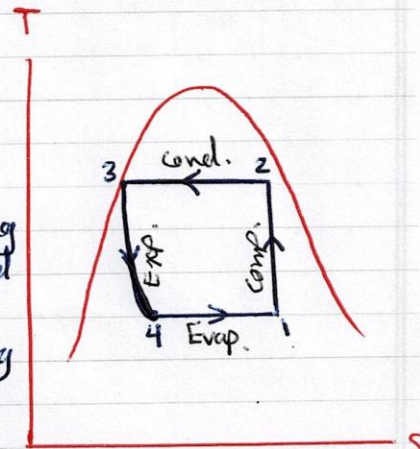 T
3 cond. 2
Exp.
Comp.
4 Evap. 1
S